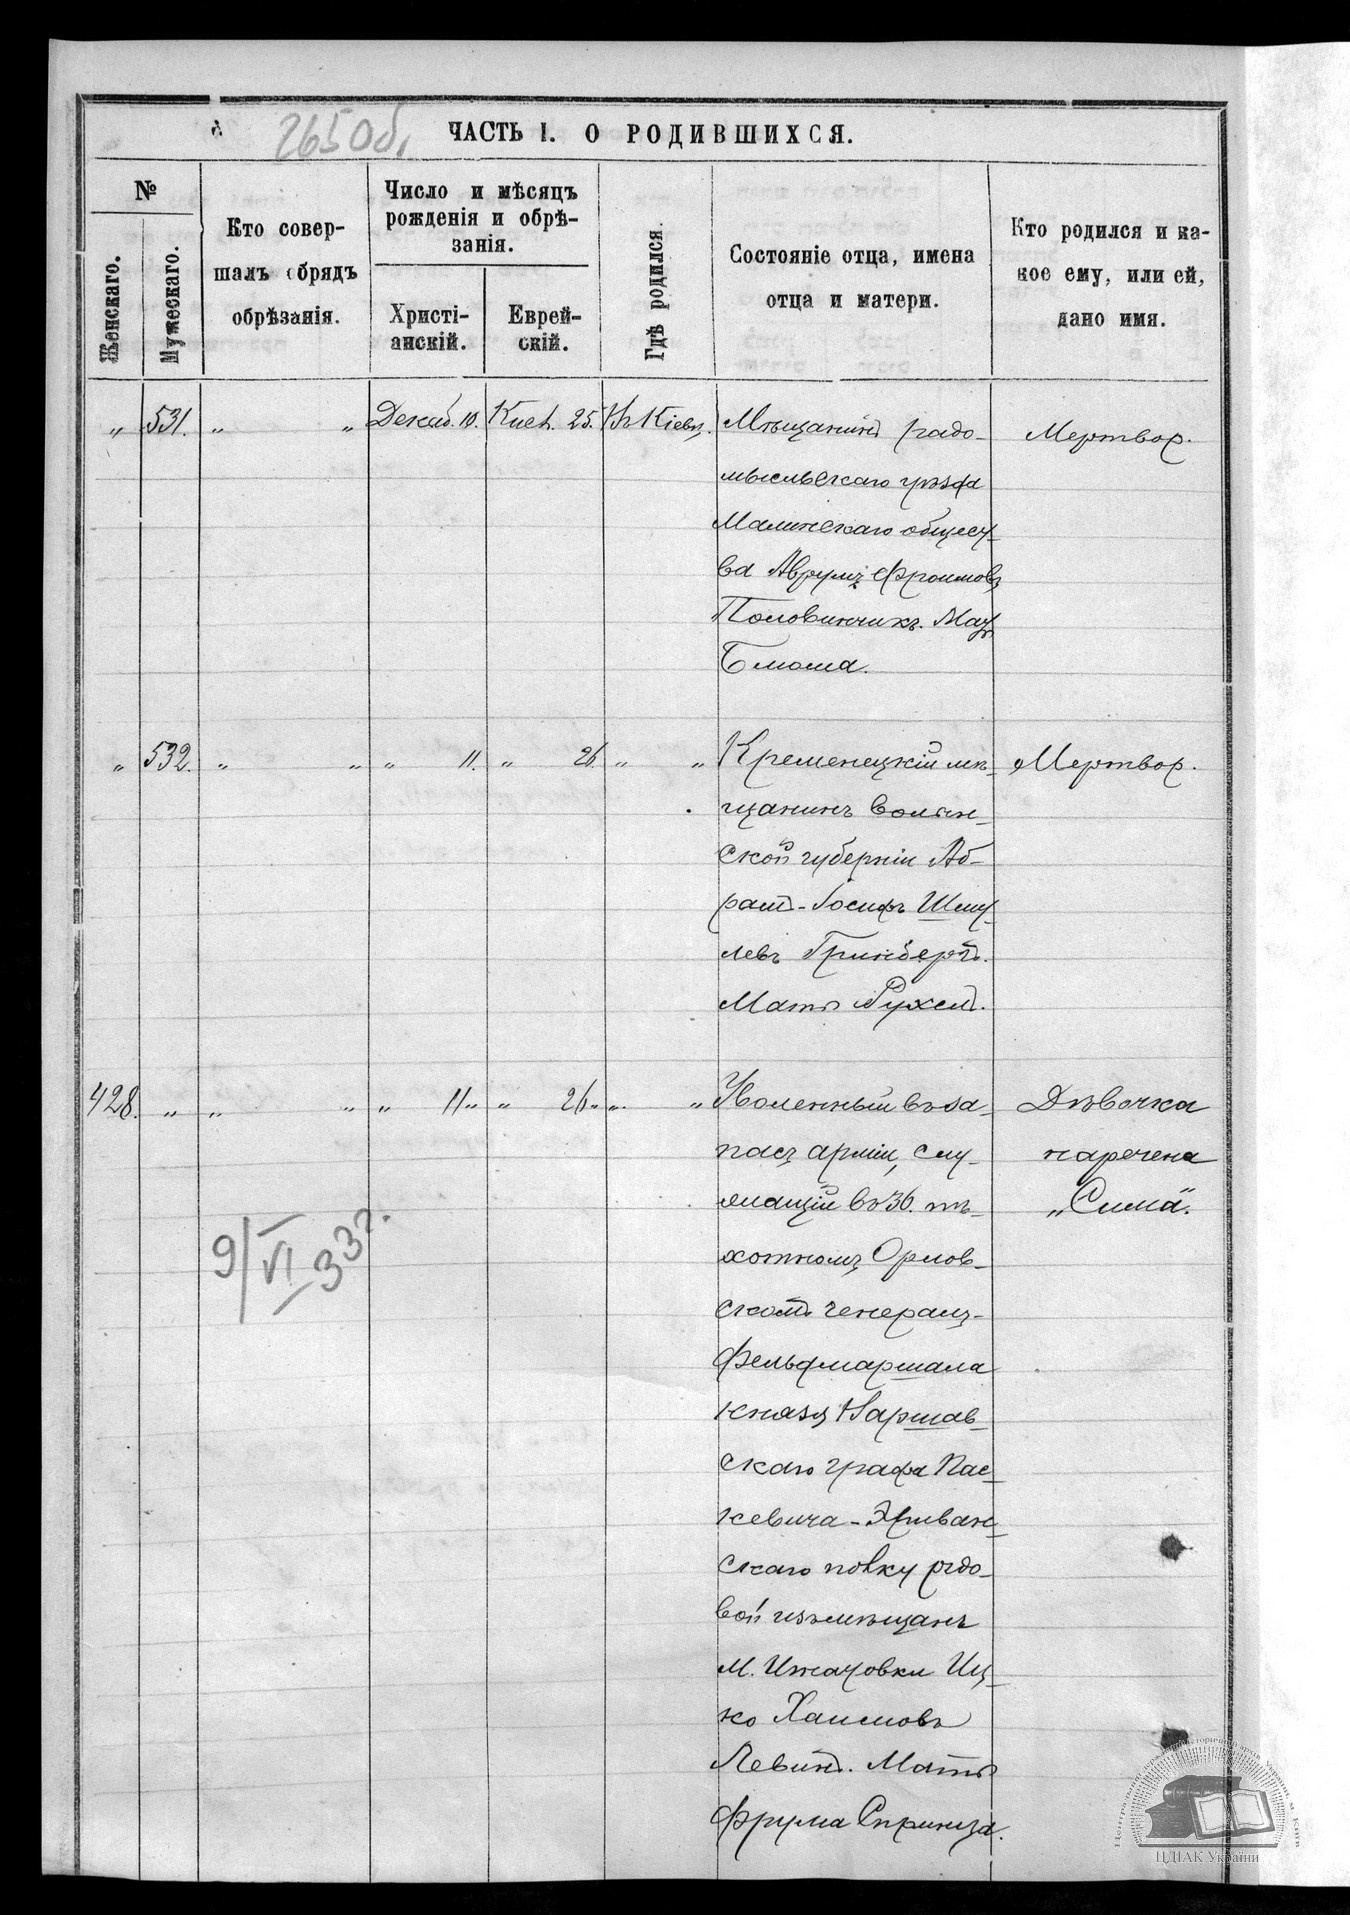 265об.
ЧАСТЬ I. О РОДИВШИХСЯ.
№
Женскаго.
Мужескаго.
Кто совер-
шалъ обрядъ
обрѣзанія.
Число и мѣсяцъ
рожденія и обрѣ-
занія.
Христі-
анскій.
Еврей-
скій.
Гдѣ родился.
Состояніе отца, имена
отца и матери.
Кто родился и ка-
кое ему, или ей,
дано имя.
„ 531. „ „ Декаб. 10. Кисл. 25. Въ Кіевѣ.
Мѣщанинъ радо-
мысльскаго уѣзда
Малинскаго общест-
ва Аврумъ Фроимовъ
Половинчикъ. Мать
Блюма.
Мертвор.
„ 532. „ „ „ 11. „ 26. „ „
Кременецкій мѣ-
щанинъ волын-
ской губерніи Аб-
рамъ-Іосифъ Шму-
левъ Гринбергъ.
Мать Рухель.
Мертвор.
428. „ „ „ „ 11 „ „ 26 „ „ „
Уволенный въ за-
пасъ арміи, слу-
жащій въ 36. пѣ-
хотномъ Орлов-
скомъ генералъ-
фельдмаршала
князя Варшав-
скаго графа Пас-
кевича-Эриван-
скаго полку рядо-
вой изъ мѣщанъ
м. Игнатовки Иц-
ко Хаимовъ
Левинъ. Мать
Фрума Спринца.
Дѣвочка
наречена
„Сима".
9/VI 33 г.
ЦДІАК України